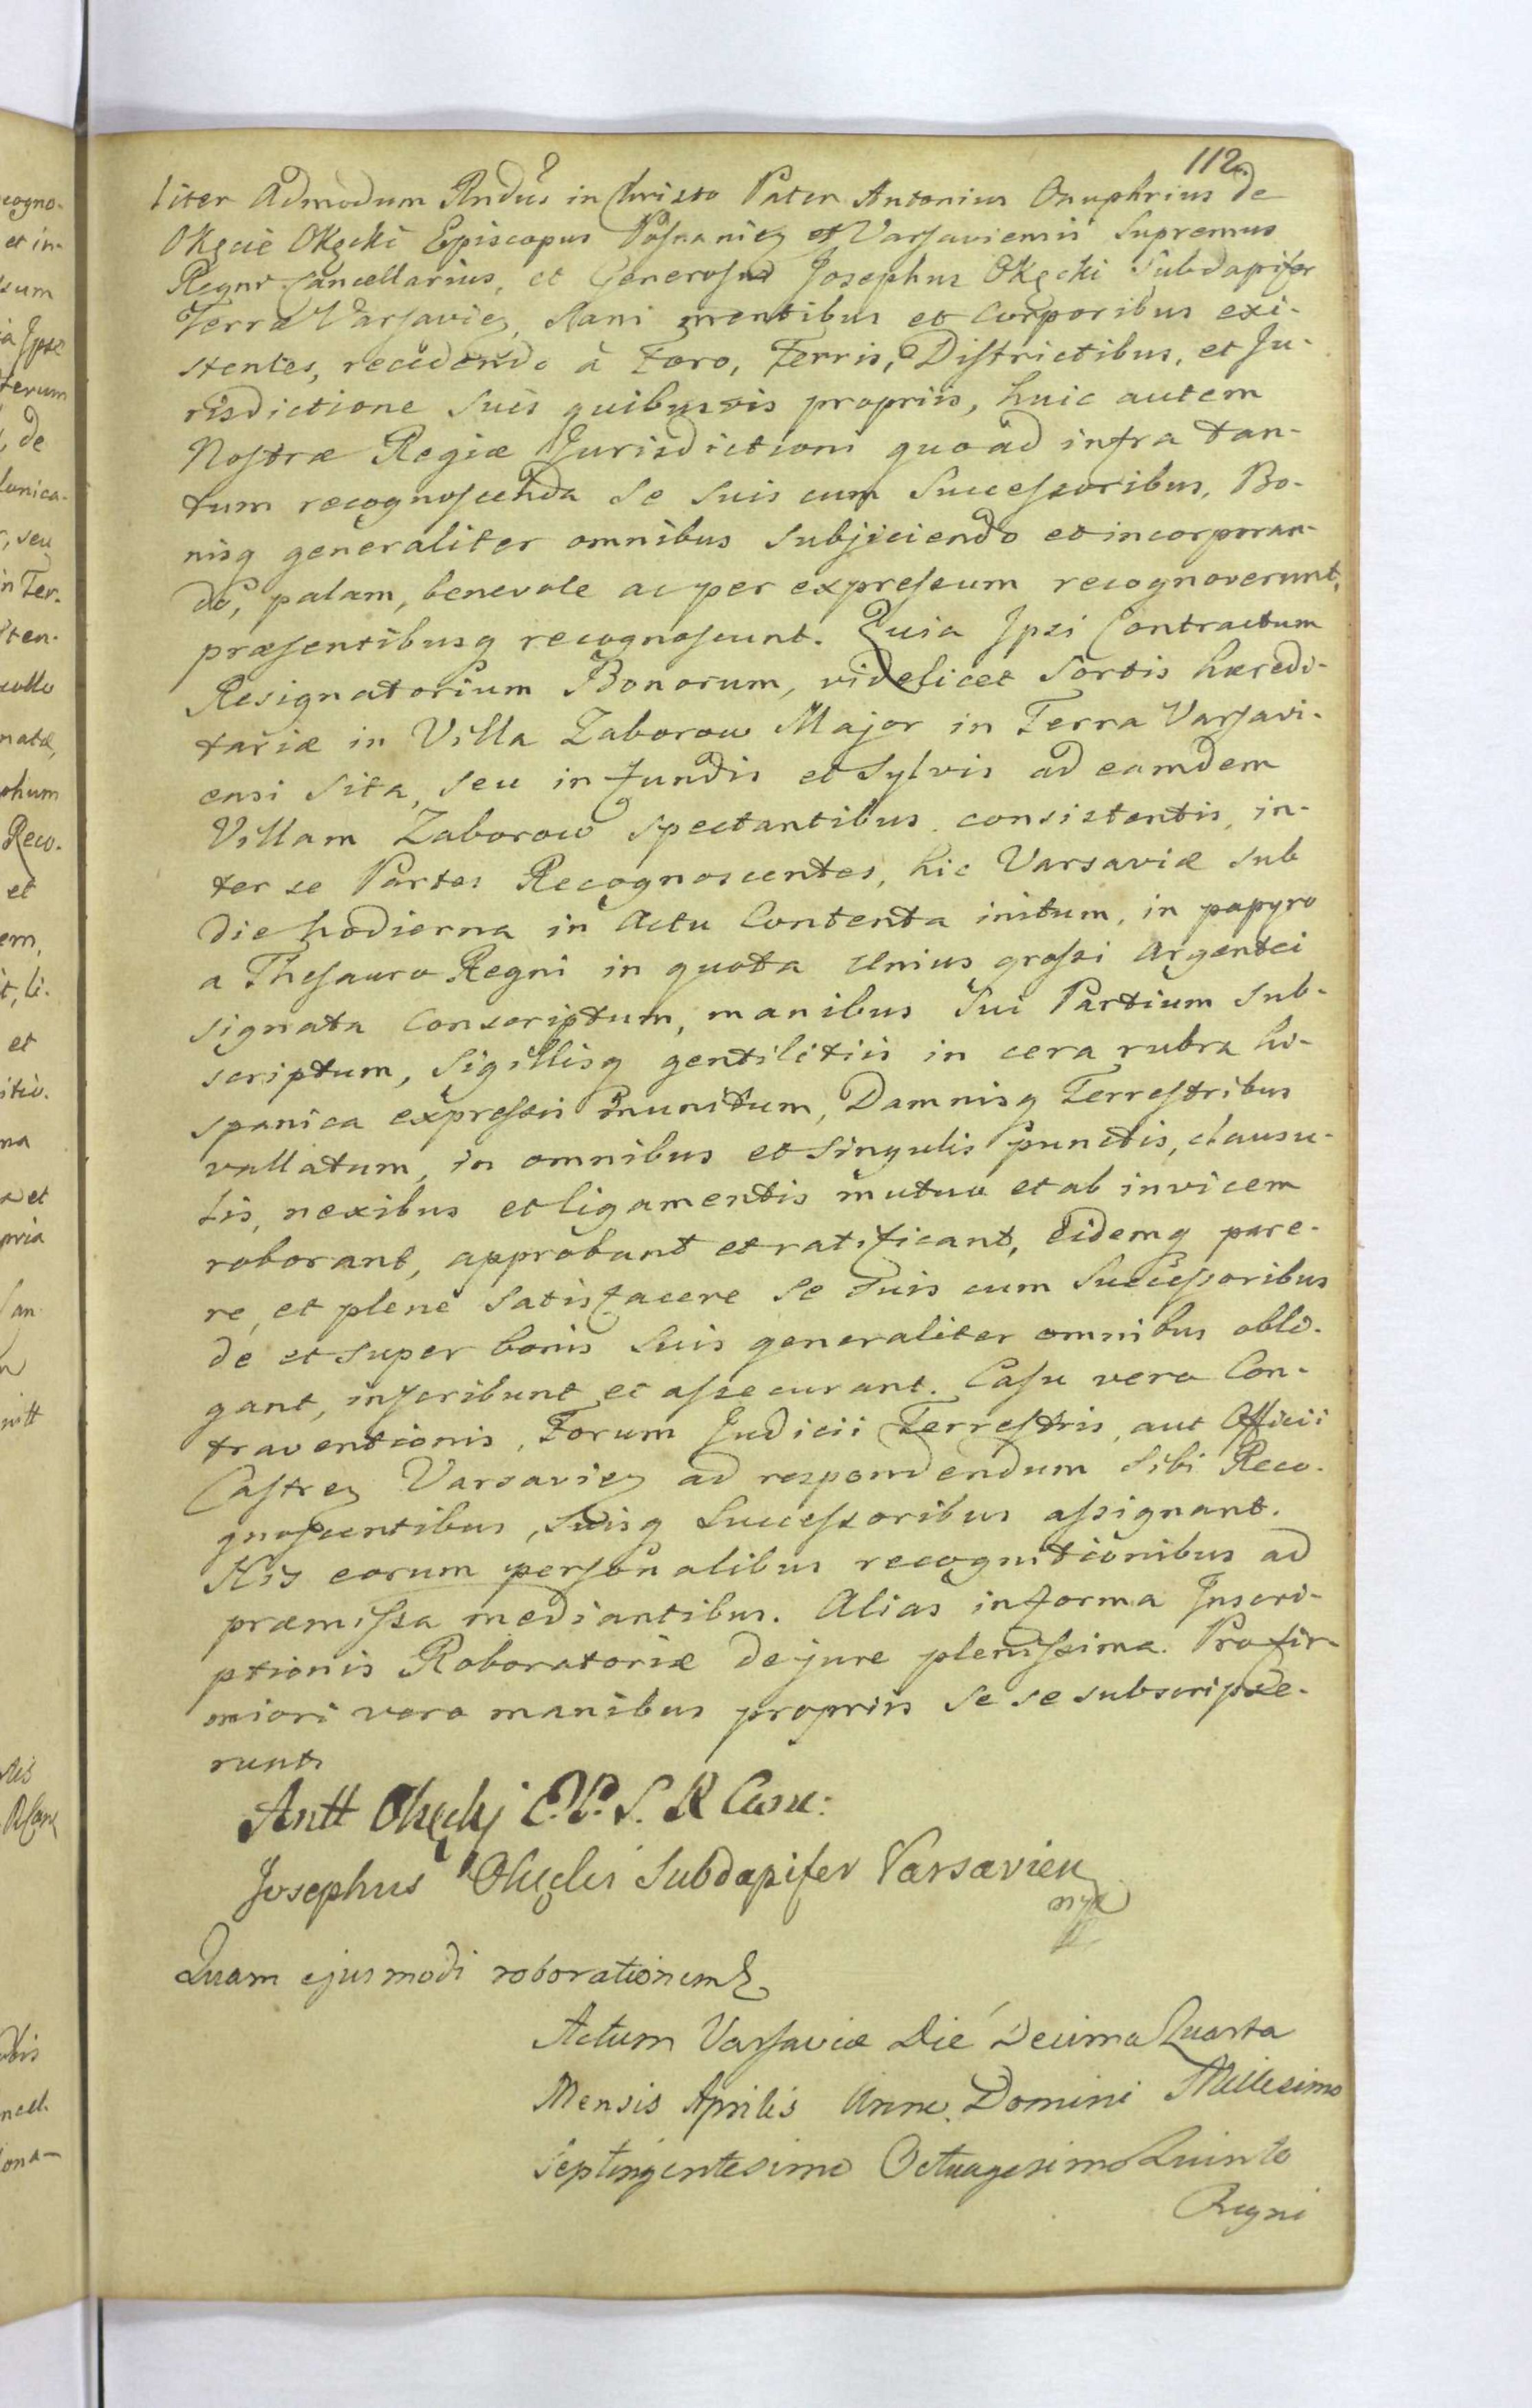 112.
liter Admodum Rndus in Christo Pater Antonius Onuphrius de
Okęcie Okęcki Episcopus Posnaniez et Varsaviensis Supremus
Regni Cancellarius, et Generosus Josephus Okęcki Subdapifer
Terræ Varsaviez, Sani mentibus et Corporibus exi-
stentes, recedendo à Foro, Terris, Districtibus, et Ju-
risdictione Suis quibusvis propriis, huic autem
Nostræ Regiæ Jurisdictioni quoad infra tan-
tum recognoscenda Se Suis cum Successoribus, Bo-
nisq generaliter omnibus Subjiciendo et incorporan-
do, palam, benevole ac per expressum recognoverunt,
præsentibusq recognoscunt. Quia Jpsi Contractum
Resignatorium Bonorum, videlicet Sortis hæredi-
tariæ in Villa Zaborow Major in Terra Varsavi-
ensi Sita, Seu in fundis et Sylvis ad eamdem
Villam Zaborow Spectantibus consistentis, in-
ter se Partes Recognoscentes, hic Varsaviæ Sub
die hodierna in Actu Contenta initum, in papyro
a Thesauro Regni in quota Unius grossi Argentei
Signata Conscriptum, manibus Sui Partium Sub-
scriptum, Sigillisq gentilitiis in cera rubra hi-
spanica expressis munitum, Damnisq Terrestribus
vallatum, in omnibus et Singulis punctis, clausu-
lis, nexibus et ligamentis mutuo et ab invicem
roborant, approbant et ratificant, Eidemq pare-
re, et plene Satisfacere Se Suis cum Successoribus
de et super bonis Suis generaliter omnibus obli-
gant, inscribunt et assecurant. Casu vero Con-
traventionis, Forum Judicii Terrestris, aut Officii
Castrez Varsaviez ad respondendum Sibi Reco-
gnoscentibus, Suisq Successoribus assignant.
His eorum personalibus recognitionibus ad
præmissa mediantibus. Alias in forma Jnscri-
ptionis Roboratoriæ de jure plenissima. Pro fir-
miori vero manibus propriis Se se subscripse-
runt
Antt Okęcki E. P. S. R Canc:
Josephus Okęcki Subdapifer Varsavien
mp
Quam ejusmodi roborationem
Actum Varsaviæ Die Decima Quarta
Mensis Aprilis Anno Domini Millesimo
Septingentesimo Octuagesimo Quinto
Regni